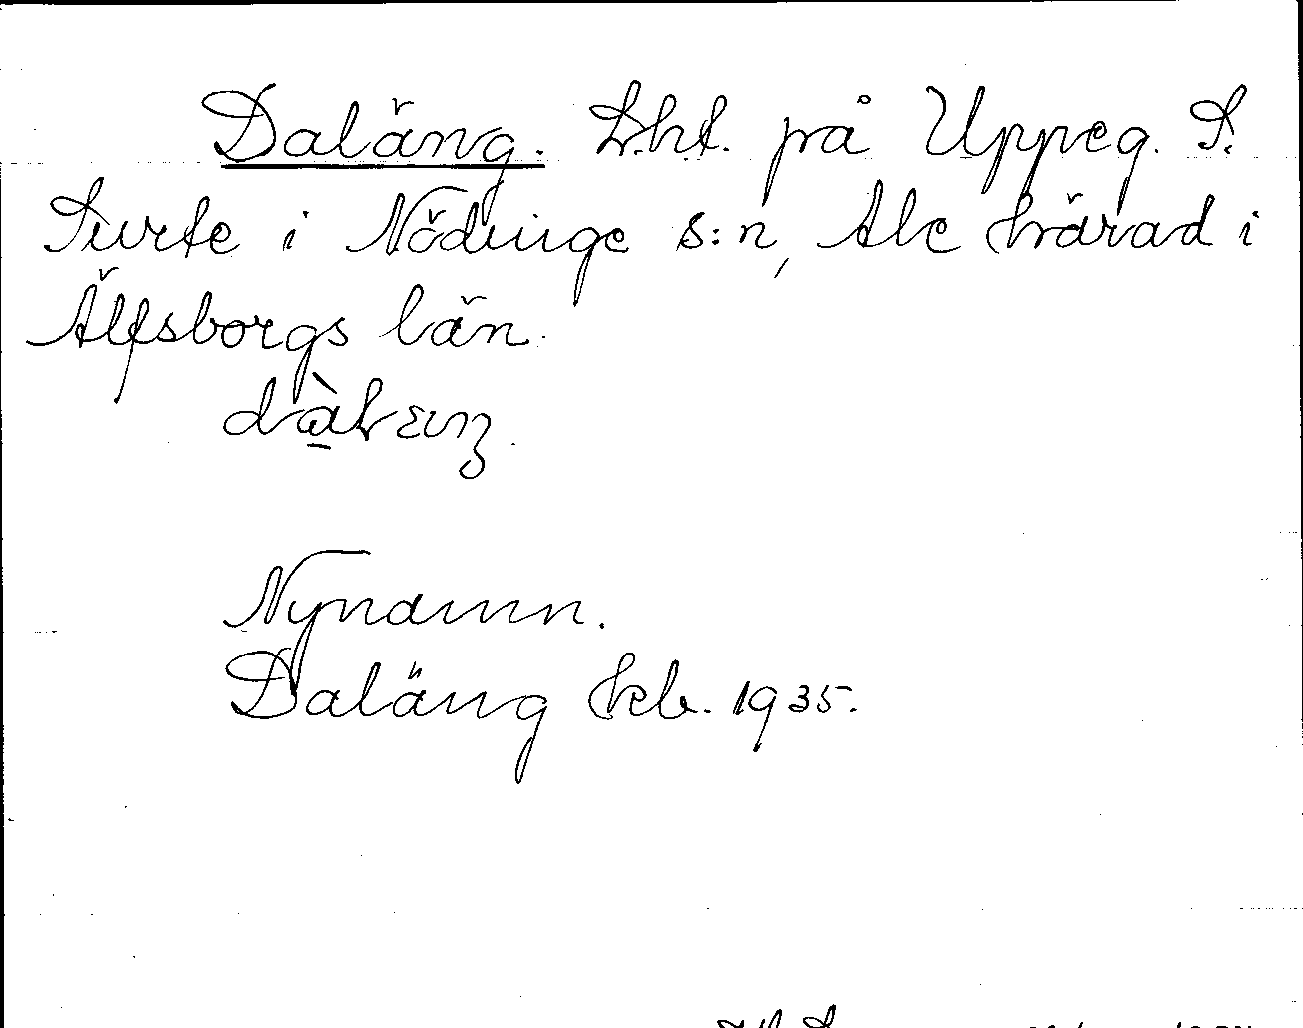 Daläng. Lht. på Uppeg. S.
Surte i Nödinge s:n, Ale härad i
Älfsborgs län.
Nynamn.
Daläng kb. 1935.